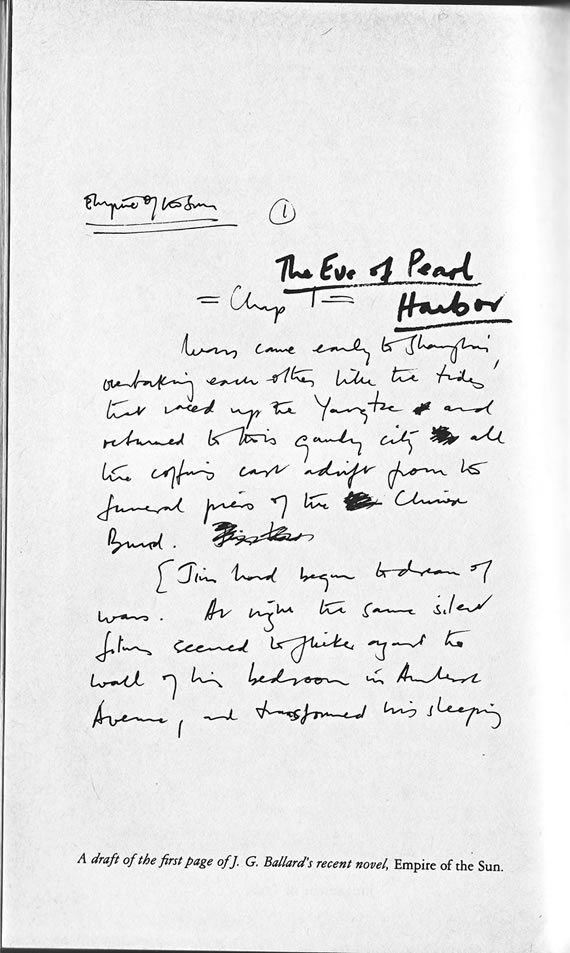 Empire of the Sun
1
The Eve of Pearl
Harbor
= Chap 1 =
Wars came early to Shanghai,
overtaking each other like the tides
that raced up the Yangtze and
returned to this gaudy city all
the coffins cast adrift from the
funeral piers of the Chinese
Bund.
[Jim had begun to dream of
wars. At night the same silent
films seemed to flicker against the
wall of his bedroom in Amherst
Avenue, and transformed his sleeping
A draft of the first page of J. G. Ballard's recent novel, Empire of the Sun.